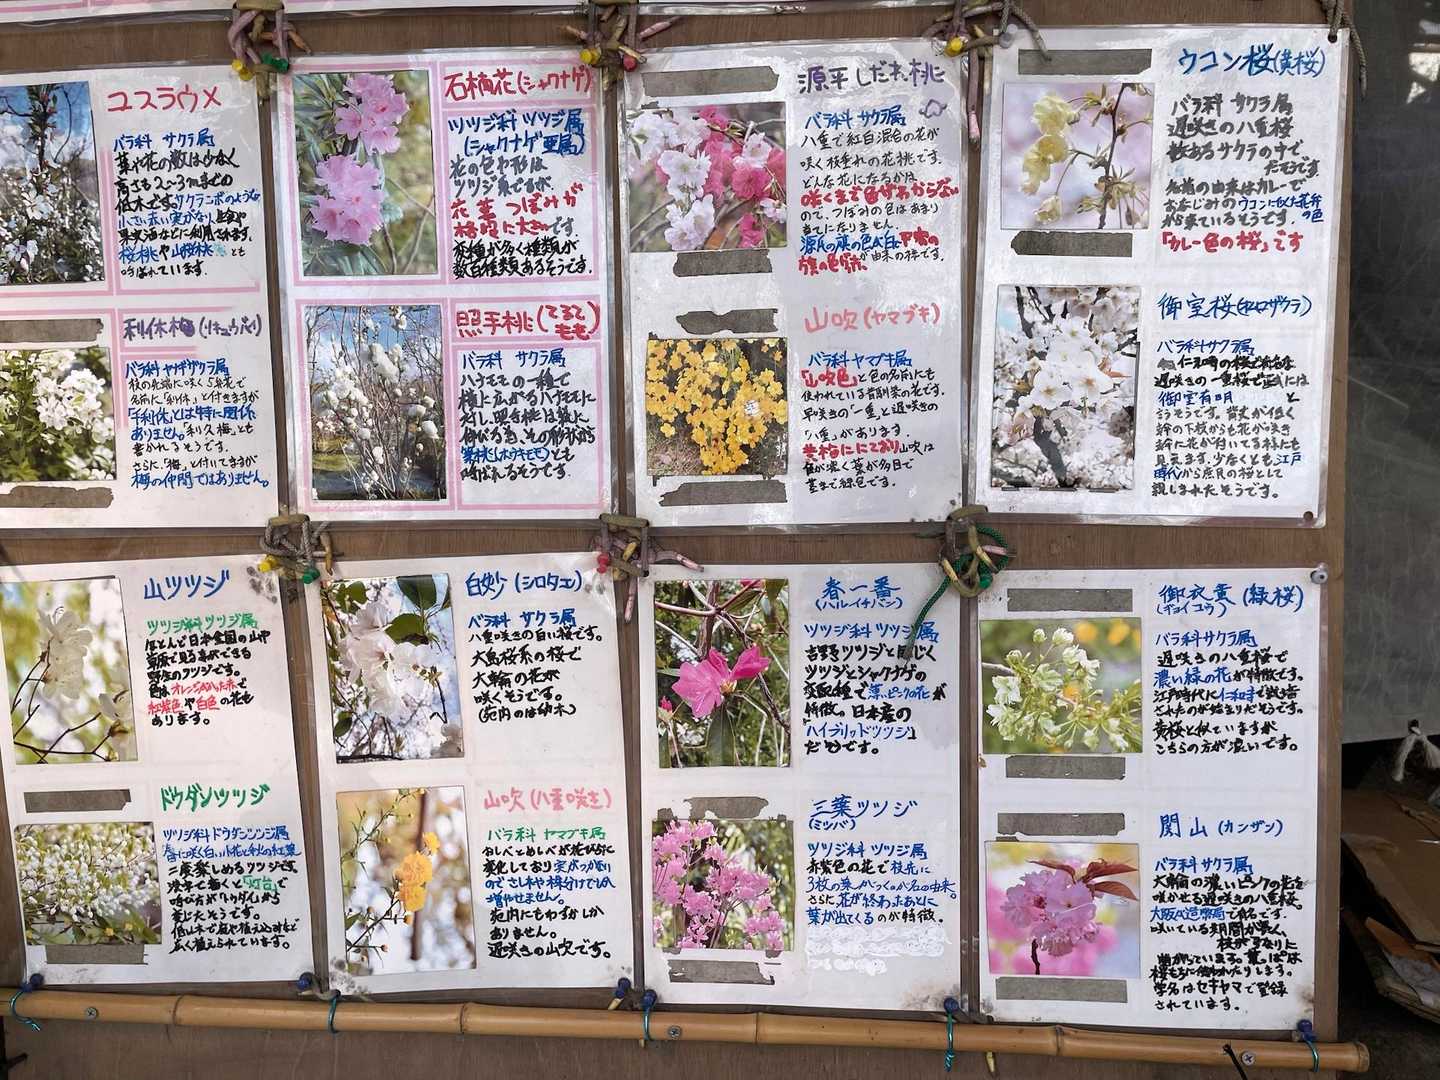 ユスラウメ
バラ科 サクラ属
葉や花の数は少なく
高さも2〜3mまでの
低木です。サクランボのような
小さい赤い実がなり生食や
果実酒などに利用されます。
桜桃や山桜桃とも
呼ばれています。
利休梅(リキュウバイ)
バラ科ヤナギザクラ属
枝の先端に咲く5弁花で
名前に「利休」と付きますが
「千利休」とは特に関係
ありません。「利久梅」とも
書かれるそうです。
さらに「梅」と付いてますが
梅の仲間ではありません。
石楠花(シャクナゲ)
ツツジ科 ツツジ属
(シャクナゲ亜属)
花の色や形は
ツツジ臭ですが
花 葉 つぼみが
格段に大きいです。
変種が多く種類が
数百種類あるそうです。
照手桃(てるてもも)
バラ科 サクラ属
ハナモモの一種で
横に広がるハナモモに
対し、照手桃は縦に
伸びる為、その形状から
箒桃(ホウキモモ)とも
呼ばれるそうです。
源平しだれ桃
バラ科 サクラ属
八重で紅白混合の花が
咲く枝垂れの花桃です。
どんな花になるかは
咲くまで色がわからない
ので、つぼみの色はあまり
当てになりません。
源氏の旗の色が白、平家の
旗の色が赤が由来の様です。
山吹(ヤマブキ)
バラ科ヤマブキ属
「山吹色」と色の名前にも
使われている昔馴染の花です。
早咲きの「一重」と遅咲きの
「八重」があります。
黄梅ににており山吹は
黄が濃く葉が多目で
茎まで緑色です。
ウコン桜(黄桜)
バラ科 サクラ属
遅咲きの八重桜
数あるサクラの中で
だそうです。
名前の由来はカレーで
おなじみのウコンに似た花弁の色
から来ているそうです。
「カレー色の桜」です
御室桜(オムロザクラ)
バラ科サクラ属
仁和寺の桜で有名な
遅咲きの一重桜で正式には
御室有明 と
言うそうです。背丈が低く
幹の下枝からも花が咲き
幹に花が付いてる様にも
見えます。少なくとも江戸
時代から庶民の桜として
親しまれたそうです。
山ツツジ
ツツジ科 ツツジ属
ほとんど日本全国の山や
草原で見る事ができる
野生のツツジです。
色はオレンジがかった赤で
紅紫色や白色の花も
あります。
ドウダンツツジ
ツツジ科ドウダンツツジ属
春に咲く白い小花と秋の紅葉
二度楽しめるツツジです。
漢字で書くと「灯台」で
呼び方がトウダイから
変じたそうです。
低山木で庭や植え込みなど
広く植えられています。
白妙(シロタエ)
バラ科 サクラ属
八重咲きの白い桜です。
大島桜系の桜で
大輪の花が
咲くそうです。
(苑内のは幼木)
山吹(八重咲き)
バラ科 ヤマブキ属
おしべとめしべが花びらに
変化しており実がつかない
のでさし木や株分けでしか
増やせません。
苑内にもわずかしか
ありません。
遅咲きの山吹です。
春一番
(ハルイチバン)
ツツジ科ツツジ属
吉野ツツジと同じく
ツツジとシャクナゲの
交配種で薄いピンクの花が
特徴。日本産の
「ハイブリッドツツジ」
だそうです。
三葉ツツジ
(ミツバ)
ツツジ科 ツツジ属
赤紫色の花で枝先に
3枚の葉がつくのが名の由来。
さらに花が終わったあとに
葉が出てくるのが特徴。
御衣黄(緑桜)
(ギョイコウ)
バラ科サクラ属
遅咲きの八重桜で
濃い緑の花が特徴です。
江戸時代に仁和寺で
されたのが始まりだそうです。
黄桜と似ていますが
こちらの方が濃いです。
関山(カンザン)
バラ科サクラ属
大輪の濃いピンクの花を
咲かせる遅咲きの八重桜。
大阪の造幣局で有名です。
咲いている期間が長く、
曲がっています。葉っぱは
桜もちに使われたりします。
学名はセキヤマで登録
されています。